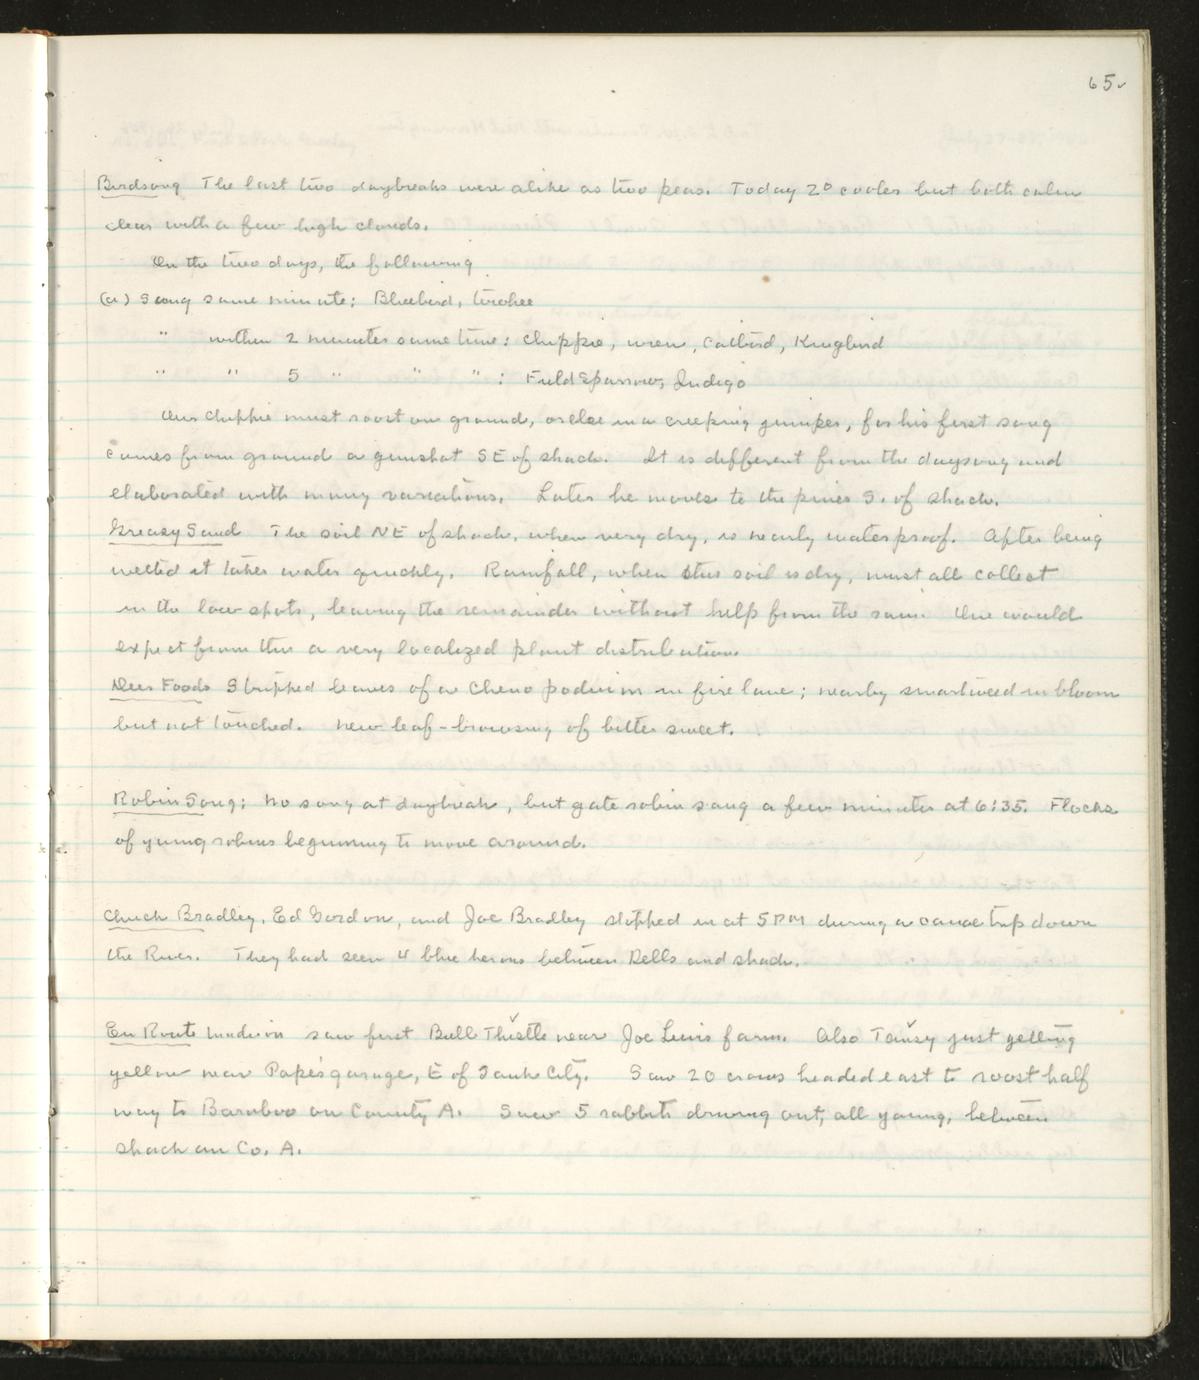 65✓
Birdsong The last two daybreaks were alike as two peas. Today 2° cooler but both calm
clear with a few high clouds.
On the two days, the following
(a) Sang same minute: Bluebird, towhee
" within 2 minutes same time: Chippie, wren, Catbird, Kingbird
" " 5 " " " : Field Sparrow, Indigo
Our chippie must roost on ground, or else in a creeping juniper, for his first song
comes from ground a gunshot SE of shack. It is different from the daysong and
elaborated with many variations. Later he moves to the pines S. of shack.
Greasy Sand The soil NE of shack, when very dry, is nearly waterproof. After being
wetted it takes water quickly. Rainfall, when this soil is dry, must all collect
in the low spots, leaving the remainder without help from the rain. One would
expect from this a very localized plant distribution.
Deer Foods Stripped leaves of a Chenopodium in fire lane; nearby smartweed in bloom
but not touched. New leaf-browsing of bittersweet.
Robin Song: No song at daybreak, but gate robin sang a few minutes at 6:35. Flocks
of young robins beginning to move around.
Chuck Bradley, Ed Gordon, and Joe Bradley stopped in at 5 PM during a canoe trip down
the River. They had seen 4 blue herons between Dells and shack.
En Route Madison saw first Bull Thistle near Joe Lewis farm. Also Tansy just getting
yellow near Pape's garage, E of Sauk City. Saw 20 crows headed east to roost half
way to Baraboo on County A. Saw 5 rabbits driving out, all young, between
shack an Co. A.